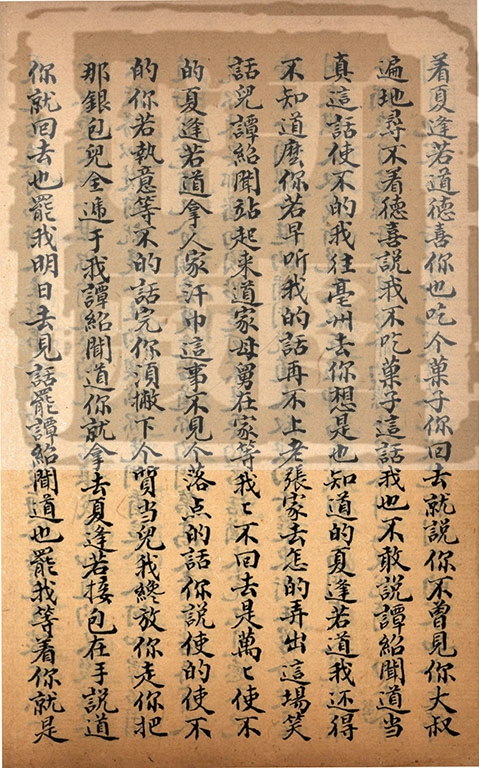 着夏逢若道德喜你也吃个菓子你回去就説你不曾見你大叔
遍地尋不着德喜説我不吃菓子這話我也不敢説譚紹聞道當
真這話使不的我往亳州去你想是也知道的夏逢若道我还得
不知道麽你若早听我的話再不上老張家去怎的弄出這場笑
話兒譚紹聞站起来道家母舅在家等我〻不回去是萬〻使不
的夏逢若道拿人家汗巾這事不見个落点的話你説使的使不
的你若執意等不的話完你須撇下个質当兒我終放你走你把
那銀包兒全逓于我譚紹聞道你就拿去夏逢若接包在手説道
你就回去也罷我明日去見話罷譚紹聞道也罷我等着你就是